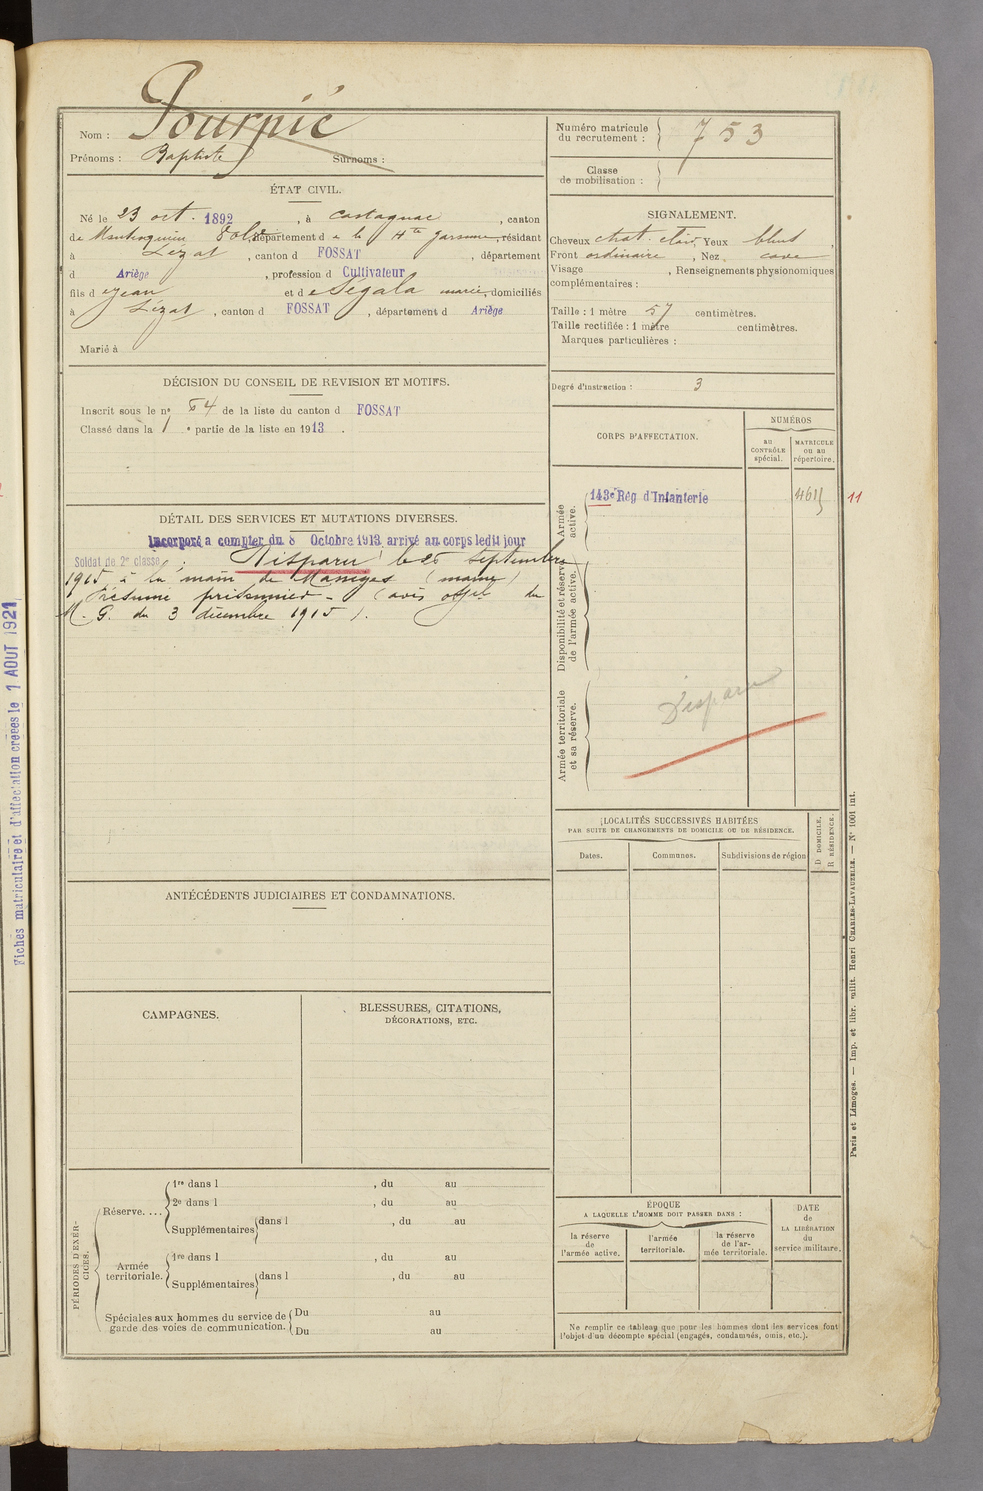 Nom : Pournié
Prénoms : Baptiste Surnoms :
ÉTAT CIVIL.
Né le 23 oct. 1892, à Castagnac, canton
de Montesquieu Volv. département d e la Hte Garonne, résidant
à Lézat, canton d FOSSAT, département
d Ariège, profession d Cultivateur
fils d e Jean et d e Ségala marie, domiciliés
à Lézat, canton d FOSSAT, département d Ariège
Marié à
DÉCISION DU CONSEIL DE REVISION ET MOTIFS.
Inscrit sous le no 54 de la liste du canton d FOSSAT
Classé dans la 1e partie de la liste en 1913.
DÉTAIL DES SERVICES ET MUTATIONS DIVERSES.
Incorporé a compter du 8 Octobre 1913 arrivé au corps ledit jour
Soldat de 2e classe. Disparu le 25 septembre
1915 à la main de Massiges (marne)
Présumé prisonnier - (avis offel du
M. G. du 3 décembre 1915).
ANTÉCÉDENTS JUDICIAIRES ET CONDAMNATIONS.
CAMPAGNES.
BLESSURES, CITATIONS,
DÉCORATIONS, ETC.
PÉRIODES D'EXERCICES.
Réserve....
1re dans l , du au
2e dans l , du au
Supplémentaires dans l , du au
Armée
territoriale.
1re dans l , du au
Supplémentaires dans l , du au
Spéciales aux hommes du service de
garde des voies de communication.
Du au
Du au
Numéro matricule
du recrutement : 753
Classe
de mobilisation :
SIGNALEMENT.
Cheveux chat. clair Yeux bleus,
Front ordinaire, Nez cave
Visage , Renseignements physionomiques
complémentaires :
Taille : 1 mètre 57 centimètres.
Taille rectifiée : 1 mètre centimètres.
Marques particulières :
Degré d'instruction : 3
CORPS D'AFFECTATION.
NUMÉROS
AU
CONTRÔLE
spécial.
MATRICULE
ou au
répertoire.
Armée
active.
143e Rég d'Infanterie 4615
11
Disponibilité et réserve
de l'armée active.
Armée territoriale
et sa réserve.
Disparu
LOCALITÉS SUCCESSIVES HABITÉES
PAR SUITE DE CHANGEMENTS DE DOMICILE OU DE RÉSIDENCE.
Dates.
Communes.
Subdivisions de région
D DOMICILE.
R RÉSIDENCE.
ÉPOQUE
A LAQUELLE L'HOMME DOIT PASSER DANS :
la réserve
de
l'armée active.
l'armée
territoriale.
la réserve
de l'ar-
mée territoriale.
DATE
de
LA LIBÉRATION
du
service militaire.
Ne remplir ce tableau que pour les hommes dont les services font
l'objet d'un décompte spécial (engagés, condamnés, omis, etc.).
Paris et Limoges. — Imp. et libr. milit. Henri CHARLES-LAVAUZELLE. — No 1001 int.
Fiches matriculaire et d'affectation créées le 1 AOUT 1921